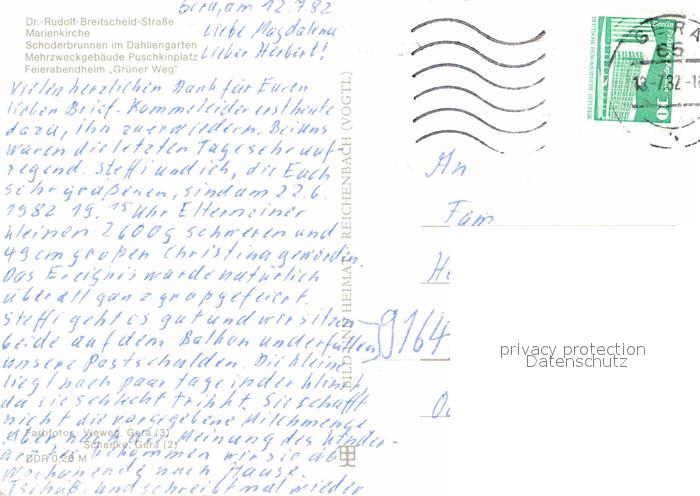 Gera, am 12.7.82
Dr.-Rudolf-Breitscheid-Straße
Marienkirche
Schoderbrunnen im Dahliengarten
Mehrzweckgebäude Puschkinplatz
Feierabendheim „Grüner Weg"
Liebe Magdalena
Lieber Herbert!
Vielen herzlichen Dank für Euren
lieben Brief. Komme leider erst heute
dazu, ihn zu erwiedern. Bei uns
waren die letzten Tage sehr auf-
regend. Steffi und ich, die Euch
sehr grüßen, sind am 22.6.
1982 19.15 Uhr Eltern einer
kleinen 2600g schweren und
49 cm großen Christina geworden.
Das Ereignis wurde natürlich
überall ganz groß gefeiert.
Steffi geht es gut und wir sitzen
beide auf dem Balkon und erfüllen
unsere Postschulden. Die kleine
liegt noch paar Tage in der Klinik
da sie schlecht trinkt. Sie schafft
nicht die vorgegebene Milchmenge
Aber nach der Meinung des Kinder-
arztes bekommen wir sie ab
Wochenende nach Hause.
Tschüß, und schreibt mal wieder
Farbfotos: Vieweg, Gera (3)
Schenke, Gera (2)
DDR 0,20 M
BILD UND HEIMAT REICHENBACH (VOGTL)
GERA
13-7.82-1
Berlin
DEUTSCHE DEMOKRATISCHE REPUBLIK
10
An
Fam
9164
privacy protection
Datenschutz